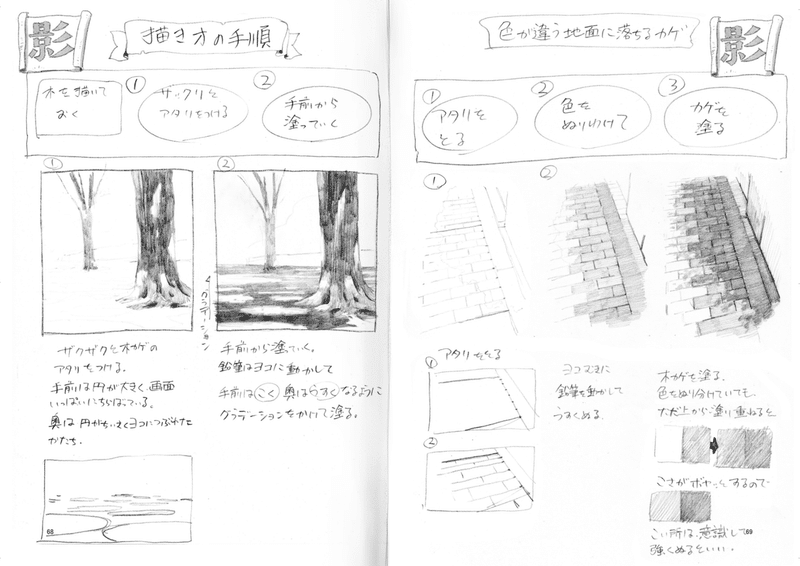 影
描き方の手順
木を描いて
おく
①
ザックリと
アタリをつける
②
手前から
塗っていく
①
②
グラデーション
ザクザクと木カゲの
アタリをつける。
手前は円が大きく、画面
いっぱいにちらばっている。
奥は円がちいさくヨコにつぶれた
かたち。
手前から塗っていく。
鉛筆はヨコに動かして
手前はこく奥はうすくなるように
グラデーションをかけて塗る。
68
色が違う地面に落ちるカゲ
影
①
アタリを
とる
②
色を
ぬりわけて
③
カゲを
塗る
①
②
① アタリをとる
②
ヨコむきに
鉛筆を動かして
うすくぬる。
木カゲを塗る。
色をぬり分けていても、
ただ上から塗り重ねると
こさがボヤッとするので
こい所は、意識して
強くぬるといい。
69